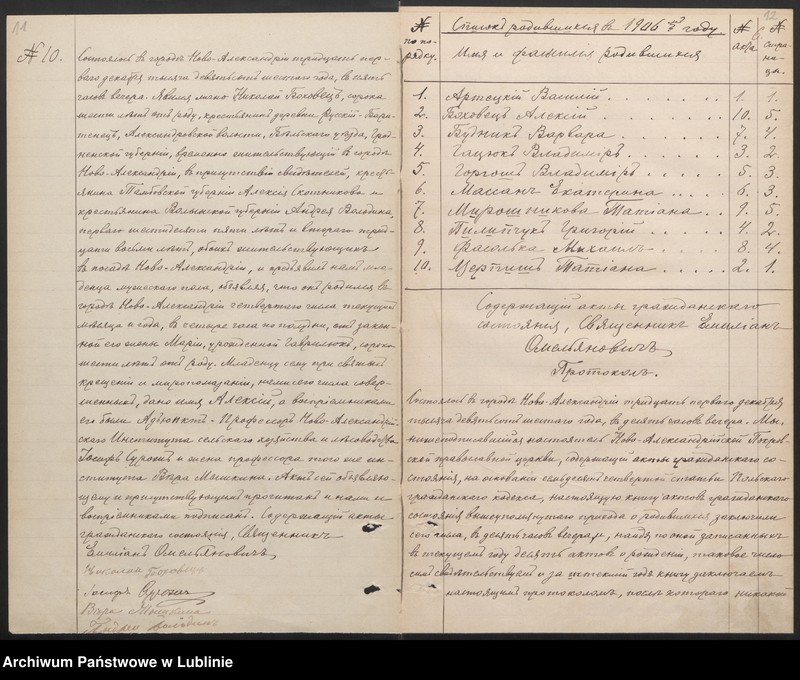 11
№ 10.
Состоялось въ городѣ Ново-Александріи тридцать пер-
ваго декабря тысяча девятьсотъ шестого года, въ пять
часовъ вечера. Явился лично Николай Боховецъ, сорока
шести лѣтъ отъ роду, крестьянинъ деревни
Александровской волости, Бѣльскаго уѣзда, Грод-
ненской губерніи, временно жительствующій въ городѣ
Ново-Александріи, въ присутствіи свидѣтелей, кресть-
янина Тамбовской губерніи Алексѣя Скотникова и
крестьянина Волынской губерніи Андрея Володина,
перваго шестидесяти пяти лѣтъ и втораго трид-
цати восьми лѣтъ, обоихъ жительствующихъ
въ посадѣ Ново-Александріи, и предъявилъ намъ мла-
денца мужескаго пола, объявляя, что онъ родился въ
городѣ Ново-Александріи четвертаго числа текущаго
мѣсяца и года, въ четыре часа по полудни, отъ закон-
ной его жены Маріи, урожденной Гаврилюкъ, сорока
шести лѣтъ отъ роду. Младенцу сему при святомъ
крещеніи и миропомазаніи, нами сего числа совер-
шенныхъ, дано имя Алексій, а воспріемниками
его были Адъюнктъ-Професоръ Ново-Александрій-
скаго Института сельскаго хозяйства и лѣсоводства
Іосифъ и жена професора того же ин-
ститута Вѣра Мышкина. Актъ сей объявляю-
щему и присутствующимъ прочитанъ и нами и
воспріемниками подписанъ. Содержащій акты
гражданскаго состоянія, Священникъ
Емиліанъ Омельяновичъ
Николай Боховецъ
Іосифъ
Вѣра Мышкина
Андрей Володинъ
12
№ по по-
рядку.
Списокъ родившихся въ 1906 году.
Имя и фамилія родившихся
№
акта.
№
стра-
ни-
цы.
1. Артецкій Василій . . . . . . . 1. 1.
2. Боховецъ Алексій . . . . . . 10. 5.
3. Будникъ Варвара . . . . . . 7. 4.
4. Гацюкъ Владиміръ . . . . . . 3. 2.
5. Горгошъ Владиміръ . . . . . 5. 3.
6. Масанъ Екатерина . . . . 6. 3.
7. Мирошникова Татіана . . 9. 5.
8. Пилипчукъ Григорій . . . 4. 2.
9. Фасолька Михаилъ . . . . . 8. 4.
10. Татіана . . . . . 2. 1.
Содержащій акты гражданскаго
состоянія, Священникъ Емиліанъ
Омельяновичъ
Протоколъ.
Состоялось въ городѣ Ново-Александріи тридцать перваго декабря
тысяча девятьсотъ шестого года, въ десять часовъ вечера. Мы,
нижеподписавшійся настоятель Ново-Александрійской Покров-
ской православной церкви, содержащій акты гражданскаго со-
стоянія, на основаніи семьдесятъ четвертой статьи Польскаго
гражданскаго кодекса, настоящую книгу актовъ гражданскаго
состоянія вышеупомянутаго прихода о родившихся заключили
сего числа, въ десять часовъ вечера, найдя по оной записанныхъ
въ текущемъ году десять актовъ о рожденіи, таковое число
симъ свидѣтельствуемъ и за истекшій годъ книгу заключаемъ
настоящимъ протоколомъ, послѣ котораго никакой
Archiwum Państwowe w Lublinie